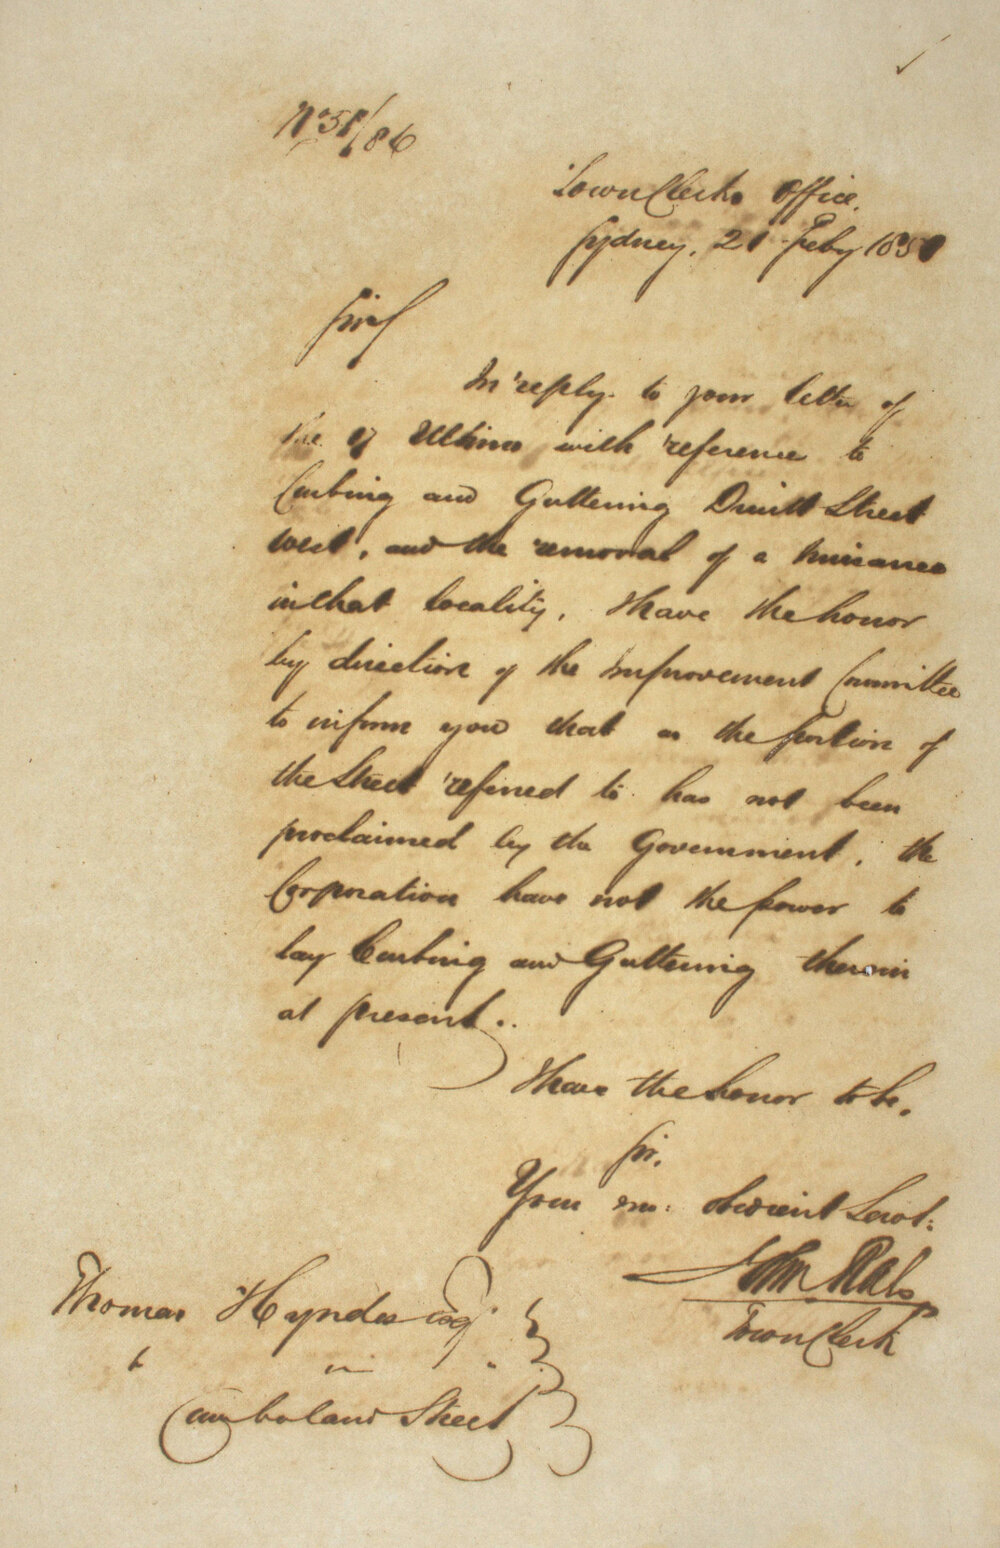 No 51/86
Town Clerks Office.
Sydney, 21 Feby 1851
Sir
In reply to your letter of
the Ultimo with reference to
Curbing and Guttering Druitt Street
West, and the removal of a Nuisance
in that locality, I have the honor
by direction of the Improvement Committee
to inform you that as the portion of
the Street referred to has not been
proclaimed by the Government, the
Corporation have not the power to
lay Curbing and Guttering therein
at present.
I have the honor to be,
Sir,
Your mo: obedient Servt:
John Rae
Town Clerk
Thomas Hyndes Esq
Cumberland Street